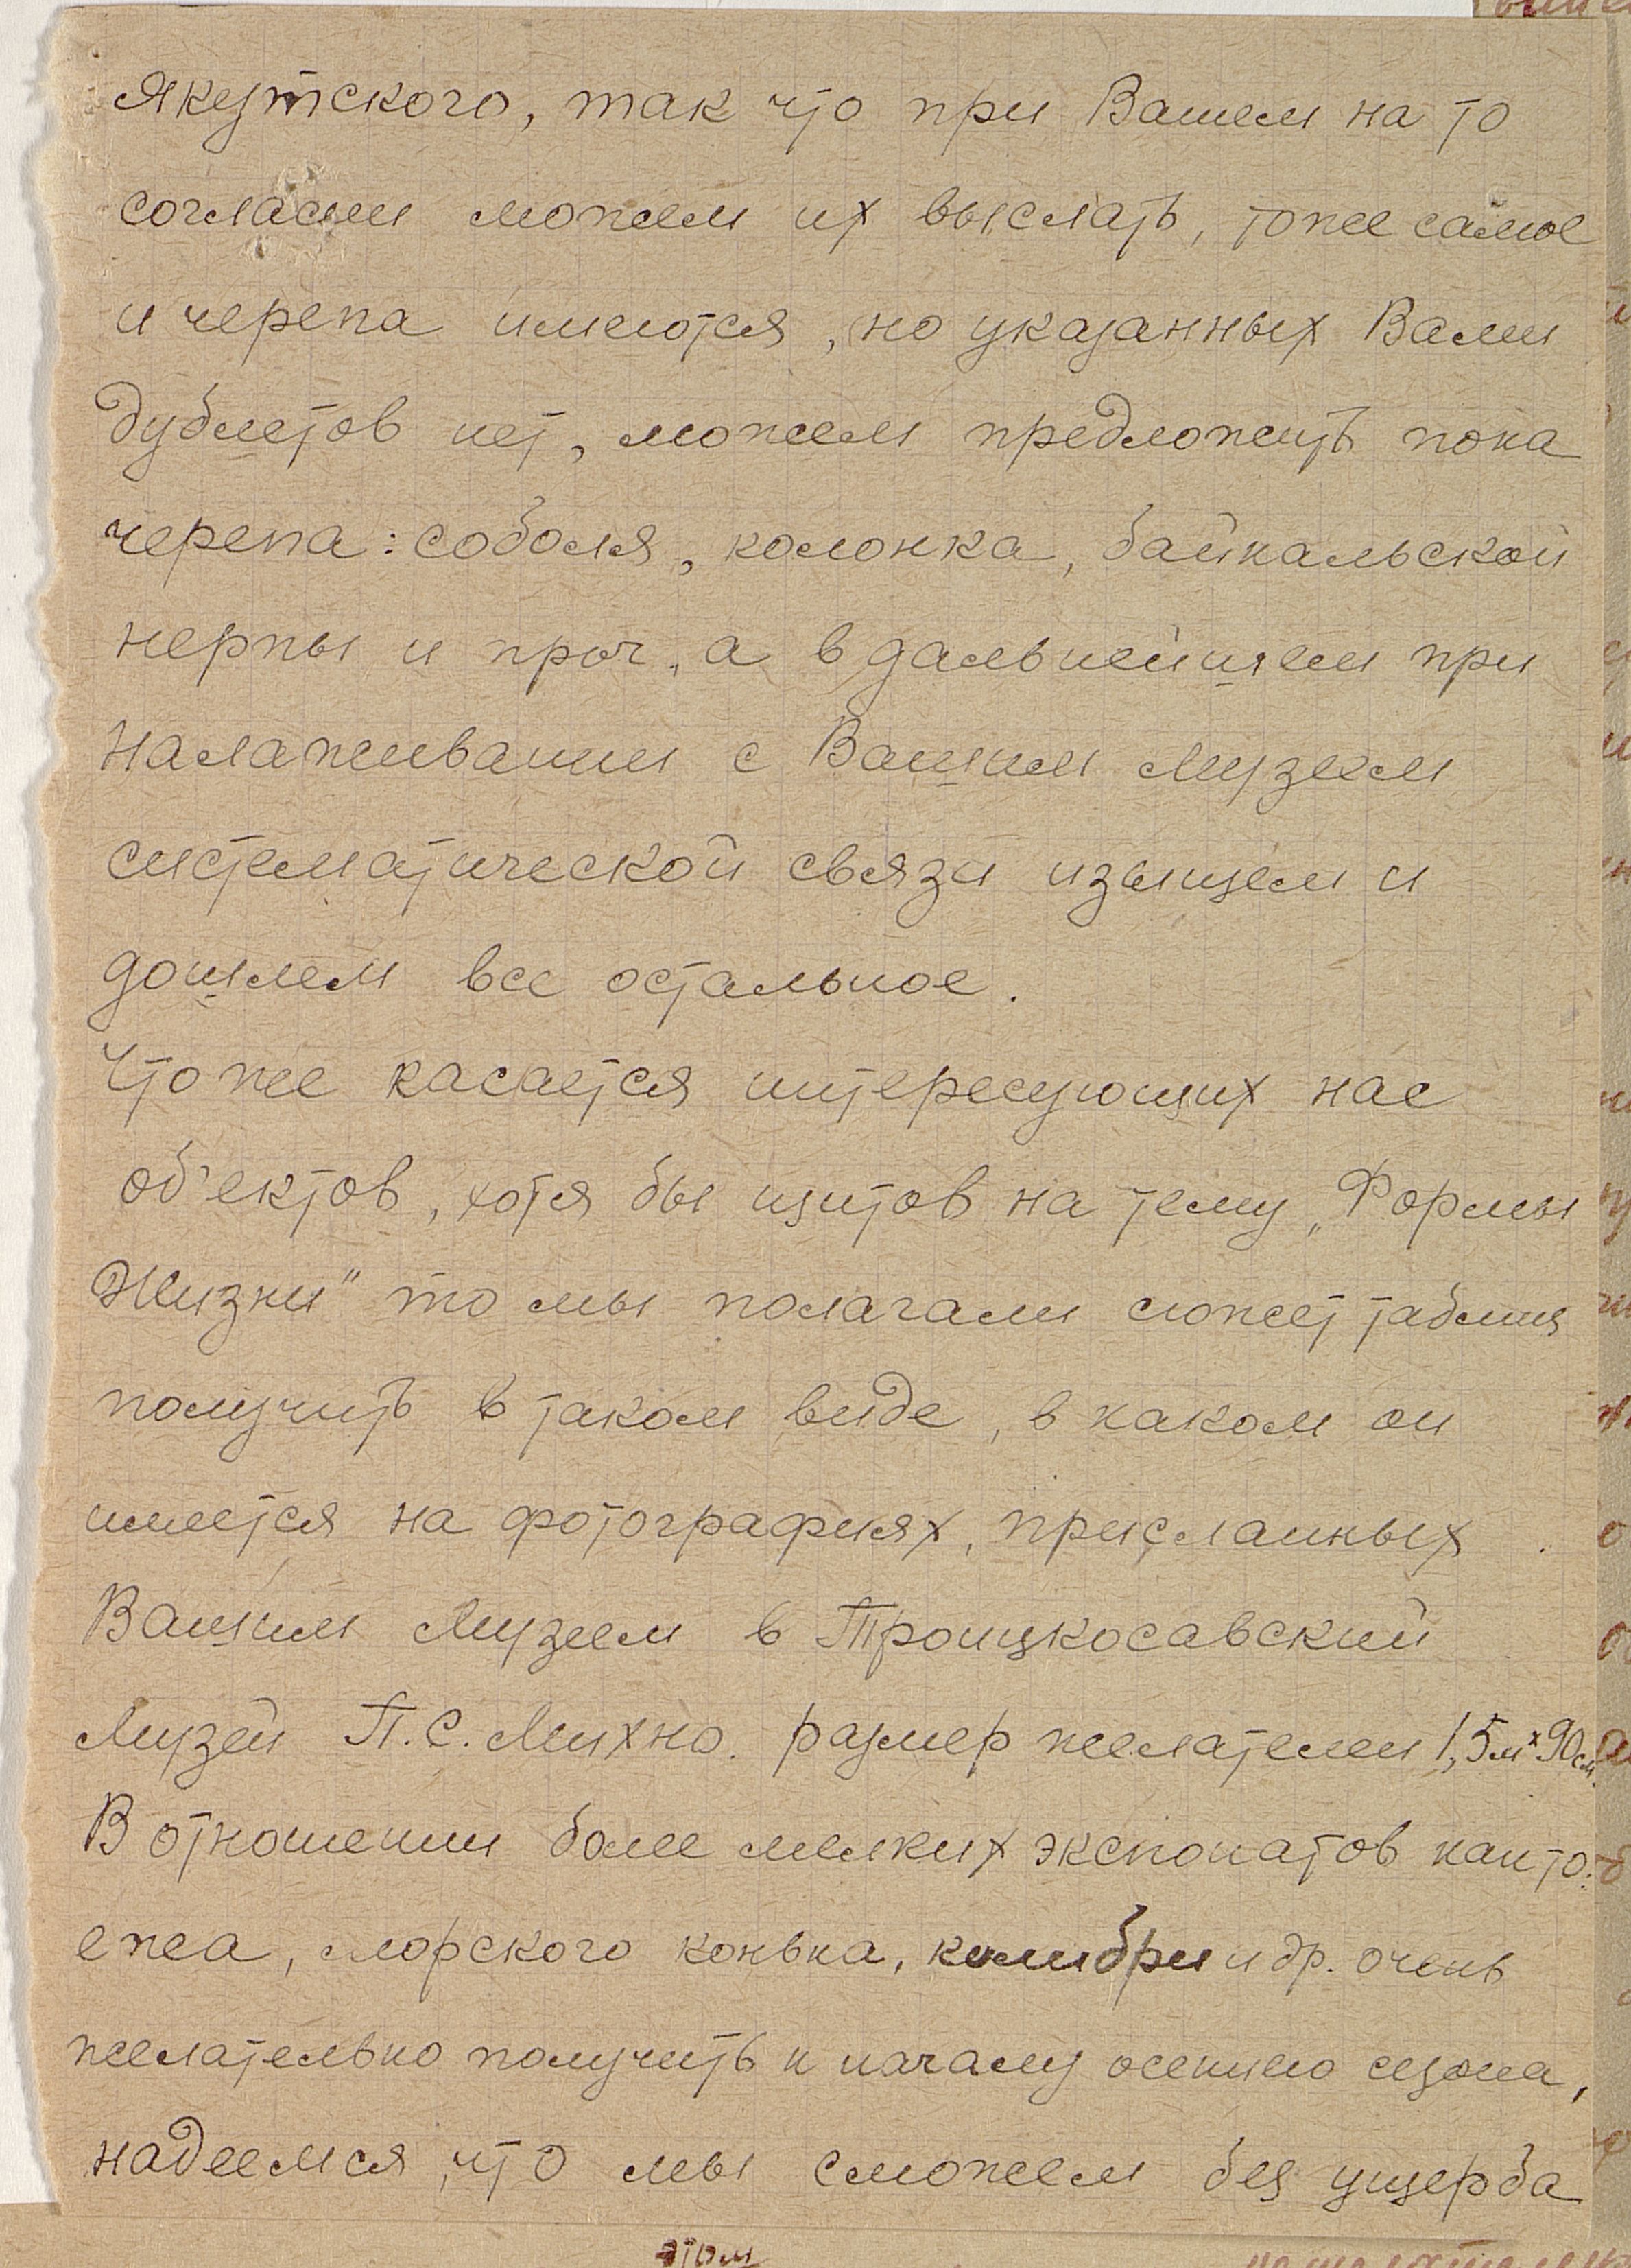 Якутского, так что при Вашем на то
согласии можем их выслать, тоже самое
и черепа имеются, но указанных Вами
дублетов нет, можем предложить пока
черепа: соболя, колонка, байкальской
нерпы и проч, а в дальнейшем при
налаживании с Вашим Музеем
систематической связи изыщем и
дошлем все остальное.
Что же касается интересующих нас
об'ектов, хотя бы щитов на тему „Формы
Жизни" то мы полагали сюжет таблиц
получить в таком виде, в каком он
имеется на фотографиях, присланных
Вашим Музеем в Троицкосавский
Музей П.С. Михно. размер желателен 1,5м х 90см.
В отношении более мелких экспонатов как то:
ежа, морского конька, колибри и др. очень
желательно получить к началу осеннего сезона,
надеемся, что мы сможем без ущерба
этом